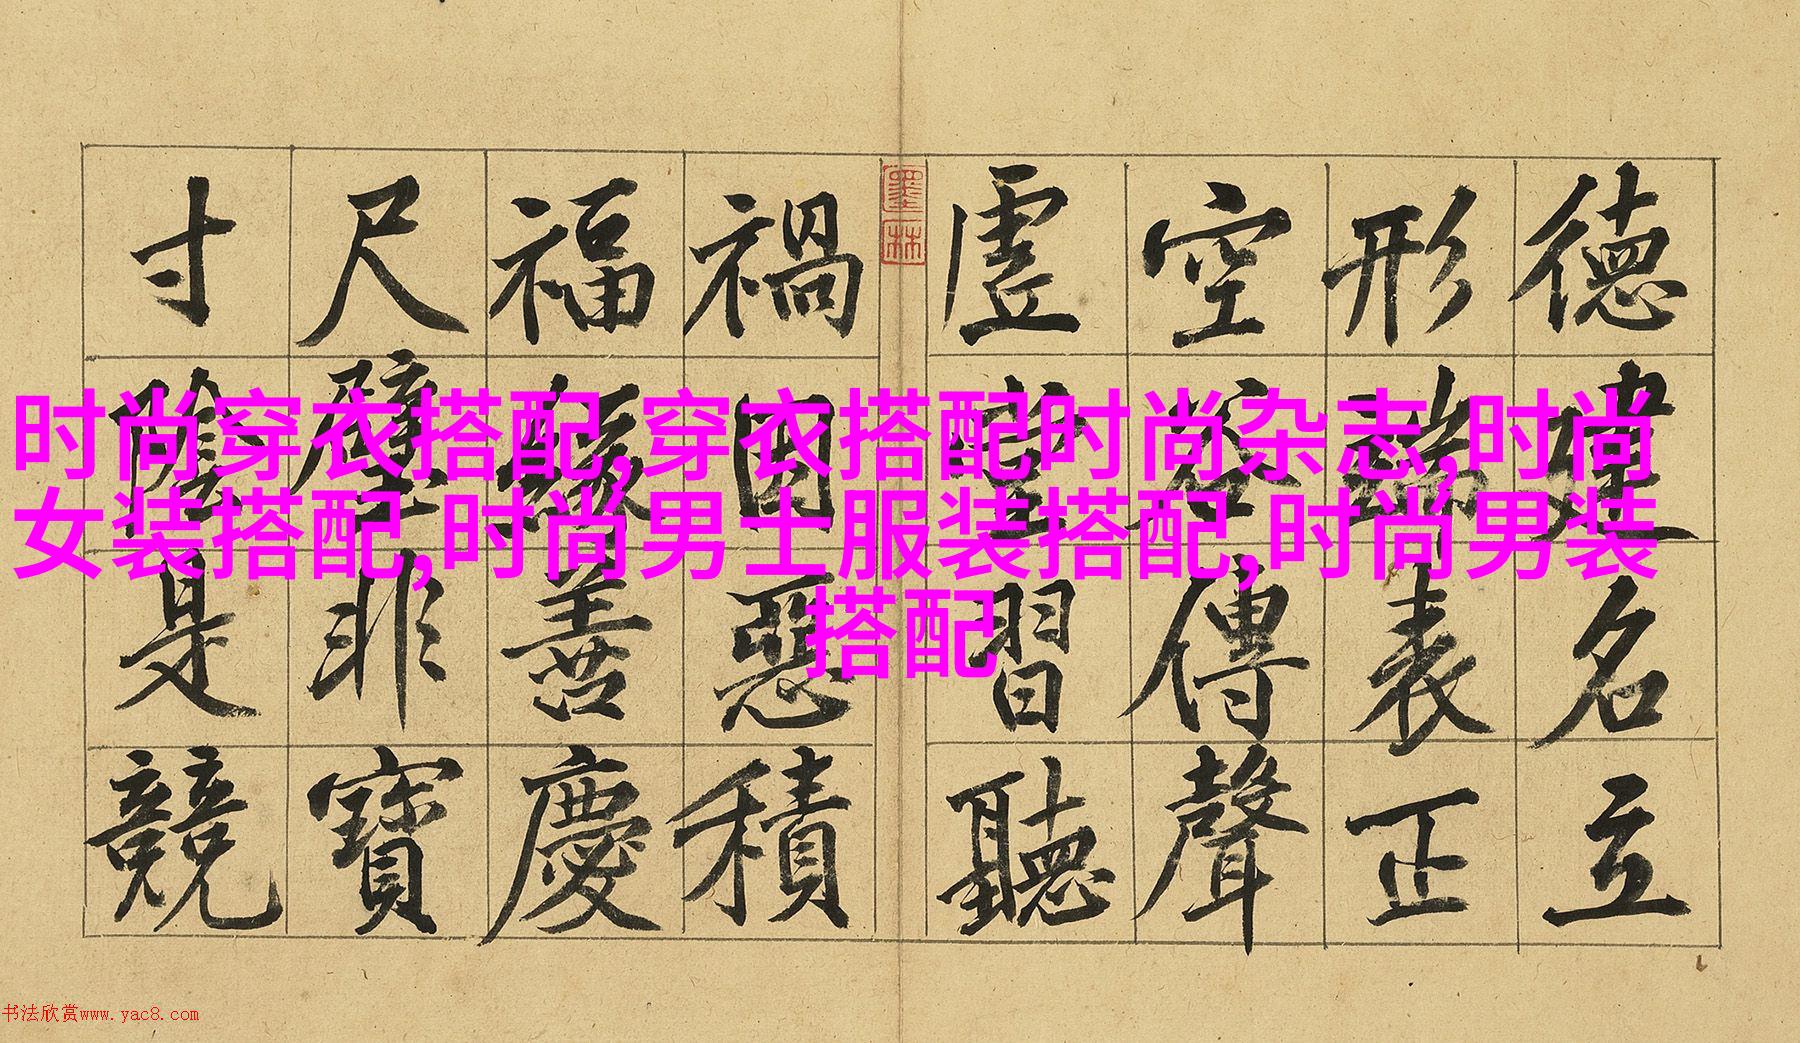 德建名立
形端表正
空谷傳聲
虛堂習聽
墨林
禍因惡積
福緣善慶
尺璧非寶
寸陰是競
时尚穿衣搭配,穿衣搭配时尚杂志,时尚
女装搭配,时尚男士服装搭配,时尚男装
搭配
书法欣赏www.yac8.com